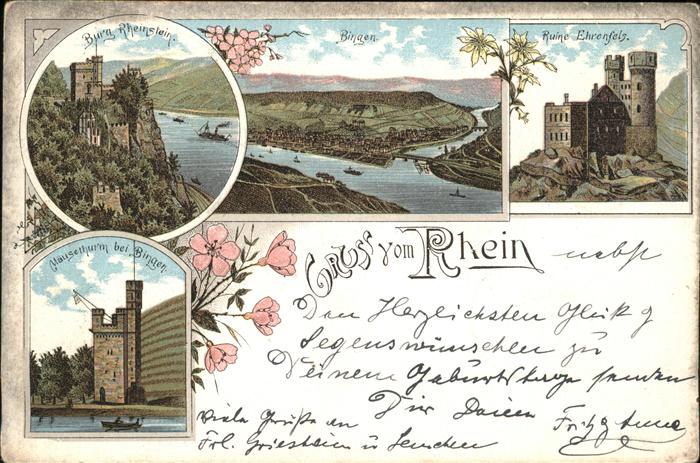 Burg Rheinstein.
Bingen.
Ruine Ehrenfels.
Mäusethurm bei Bingen.
Gruss vom Rhein
nebst
Den Herzlichsten Glück
Segenswünschen zu
Deinem Geburtstage senden
Dir Deine
Fritz Anna
Viele Grüße an
Frl. u